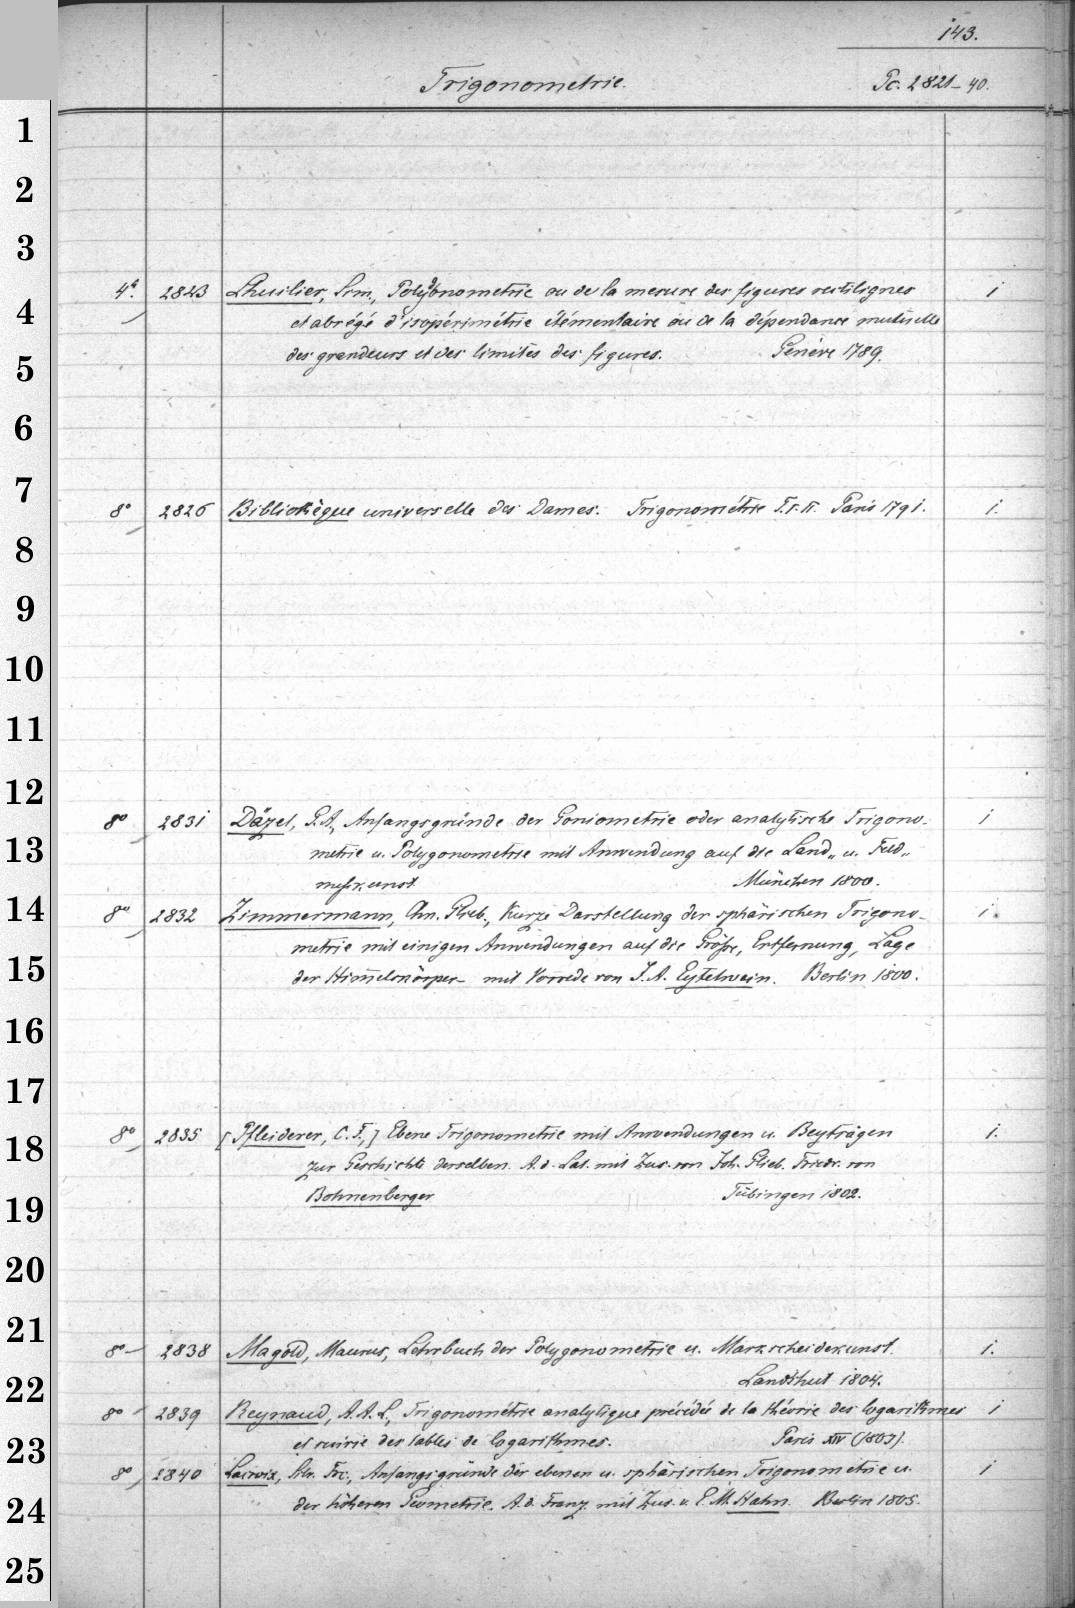 143.
Trigonometrie. Pc. 2821-40.
1
2
3
4° 2823 Lhuilier, Sim., Polygonometrie ou de la mesure des figures rectilignes 1
4 et abrégé d'isopérimétrie élémentaire ou de la dépendance mutuelle
5 des grandeurs et des limites des figures. Genève 1789.
6
7 8° 2826 Bibliothèque universelle des Dames. Trigonométrie T.I.II. Paris 1791. 1.
8
9
10
11
12
8° 2831 Däzel, G.A., Anfangsgründe der Goniometrie oder analytische Trigono- 1
13 metrie u. Polygonometrie mit Anwendung auf die Land- u. Feld-
messkunst. München 1800.
14 8° 2832 Zimmermann, Chn. Glieb., Kurze Darstellung der sphärischen Trigono- 1.
metrie mit einigen Anwendungen auf die Größe, Entfernung, Lage
15 der Him̅elskörper mit Vorrede von J. A. Eytelwein. Berlin 1800.
16
17
18 8° 2835 [Pfleiderer, C.F.,] Ebene Trigonometrie mit Anwendungen u. Beyträgen 1.
zur Geschichte derselben. A. d. Lat. mit Zus. von Joh. Glieb. Friedr. von
19 Bohnenberger Tübingen 1802.
20
21
8° 2838 Magold, Maurus, Lehrbuch der Polygonometrie u. Markscheidekunst. 1.
22 Landshut 1804.
8° 2839 Reynaud, A. A. L., Trigonométrie analytique précédée de la théorie des logarithmes 1
23 et suivie des tables de logarithmes. Paris XIV (1805).
8° 2840 Lacroix, Silv. Frc., Anfangsgründe der ebenen u. sphärischen Trigonometrie u. 1
24 der höheren Geometrie. A. d. Franz. mit Zus. v. E. M. Hahn. Berlin 1805.
25